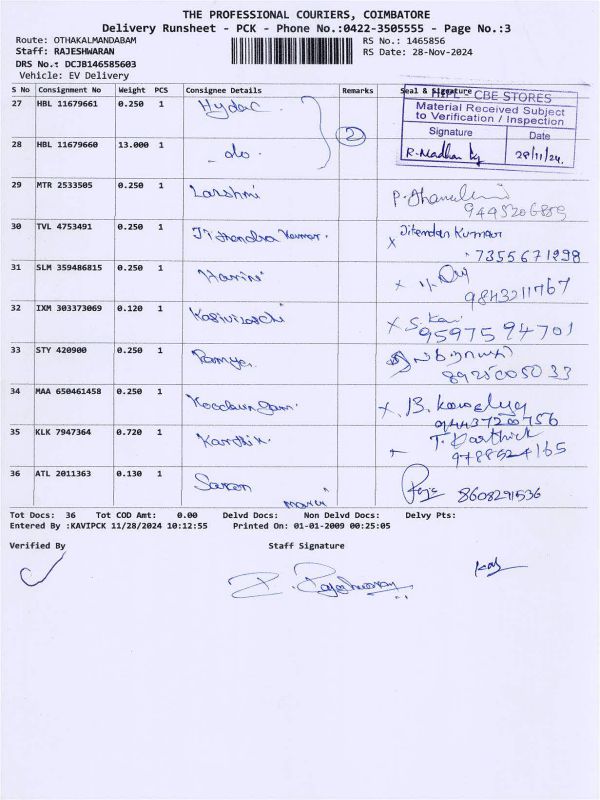 THE PROFESSIONAL COURIERS, COIMBATORE
Delivery Runsheet - PCK - Phone No.:0422-3505555 - Page No.:3
Route: OTHAKALMANDABAM RS No.: 1465856
Staff: RAJESHWARAN RS Date: 28-Nov-2024
DRS No.: DCJB146585603
Vehicle: EV Delivery
S No Consignment No Weight PCS Consignee Details Remarks Seal & Signature
CBE STORES
Material Received Subject
to Verification / Inspection
Signature Date
R. Madhan 28/11/24.
27 HBL 11679661 0.250 1 Hydac
2
28 HBL 11679660 13.000 1 - do -
29 MTR 2533505 0.250 1 Larshmi
30 TVL 4753491 0.250 1 Jithendra Kumar. x Jitendar Kumar
7355671998
31 SLM 359486815 0.250 1 Harini x
9843211767
32 IXM 303373069 0.120 1 x S.
9597594701
33 STY 420900 0.250 1 Ramya
34 MAA 650461458 0.250 1 x B.
35 KLK 7947364 0.720 1 Karthik T. Karthick
9788524165
36 ATL 2011363 0.130 1 Saran 8608291536
Tot Docs: 36 Tot COD Amt: 0.00 Delvd Docs: Non Delvd Docs: Delvy Pts:
Entered By :KAVIPCK 11/28/2024 10:12:55 Printed On: 01-01-2009 00:25:05
Verified By Staff Signature